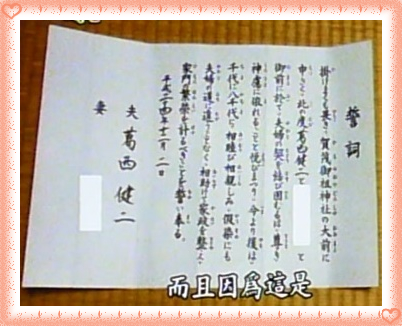 誓詞
掛けまくも畏き賀茂御祖神社の大前に
申さく、此の度葛西健二と と
御前に於て夫婦の契を結び固むるは、尊き
神慮に依れることと悦びまつり、今より後は
千代に八千代に相睦び相親しみ、假染にも
夫婦の道に違うことなく、相助けて家政を整え、
家門の繁榮を計るべきことを誓い奉る。
平成二十四年十一月二日
夫 葛西健二
妻
而且因爲這是